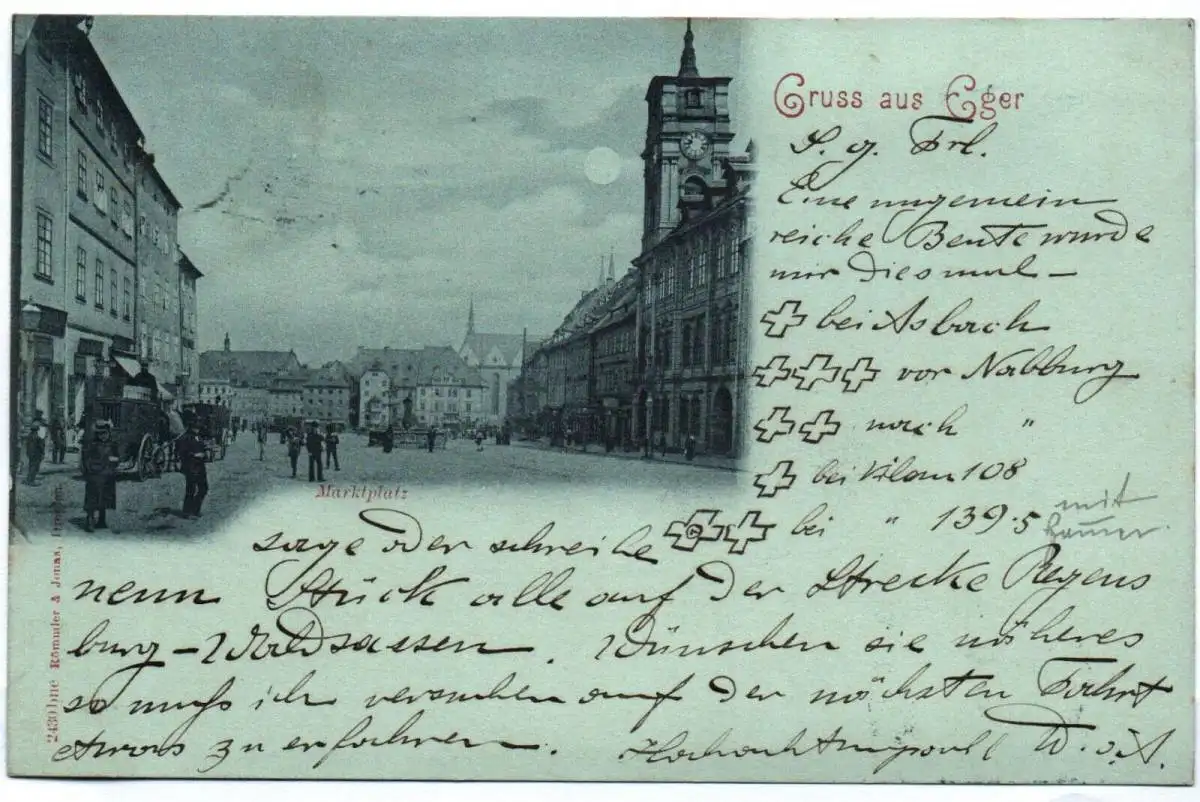 Gruss aus Eger
S. g. Frl.
Eine ungemein
reiche Beute wurde
mir diesmal —
bei Asbach
vor Nabburg
nach "
bei Kilom 108
bei " 139·5 mit
sage oder schreibe
nenn Stück alle auf der Strecke Regens
burg - Waldsassen. Wünschen sie näheres
so muss ich versuchen auf der nächsten Fahrt
etwas zu erfahren. Hochachtungsvoll W. v. A.
Marktplatz
2430 Römmler & Jonas, Dresden.